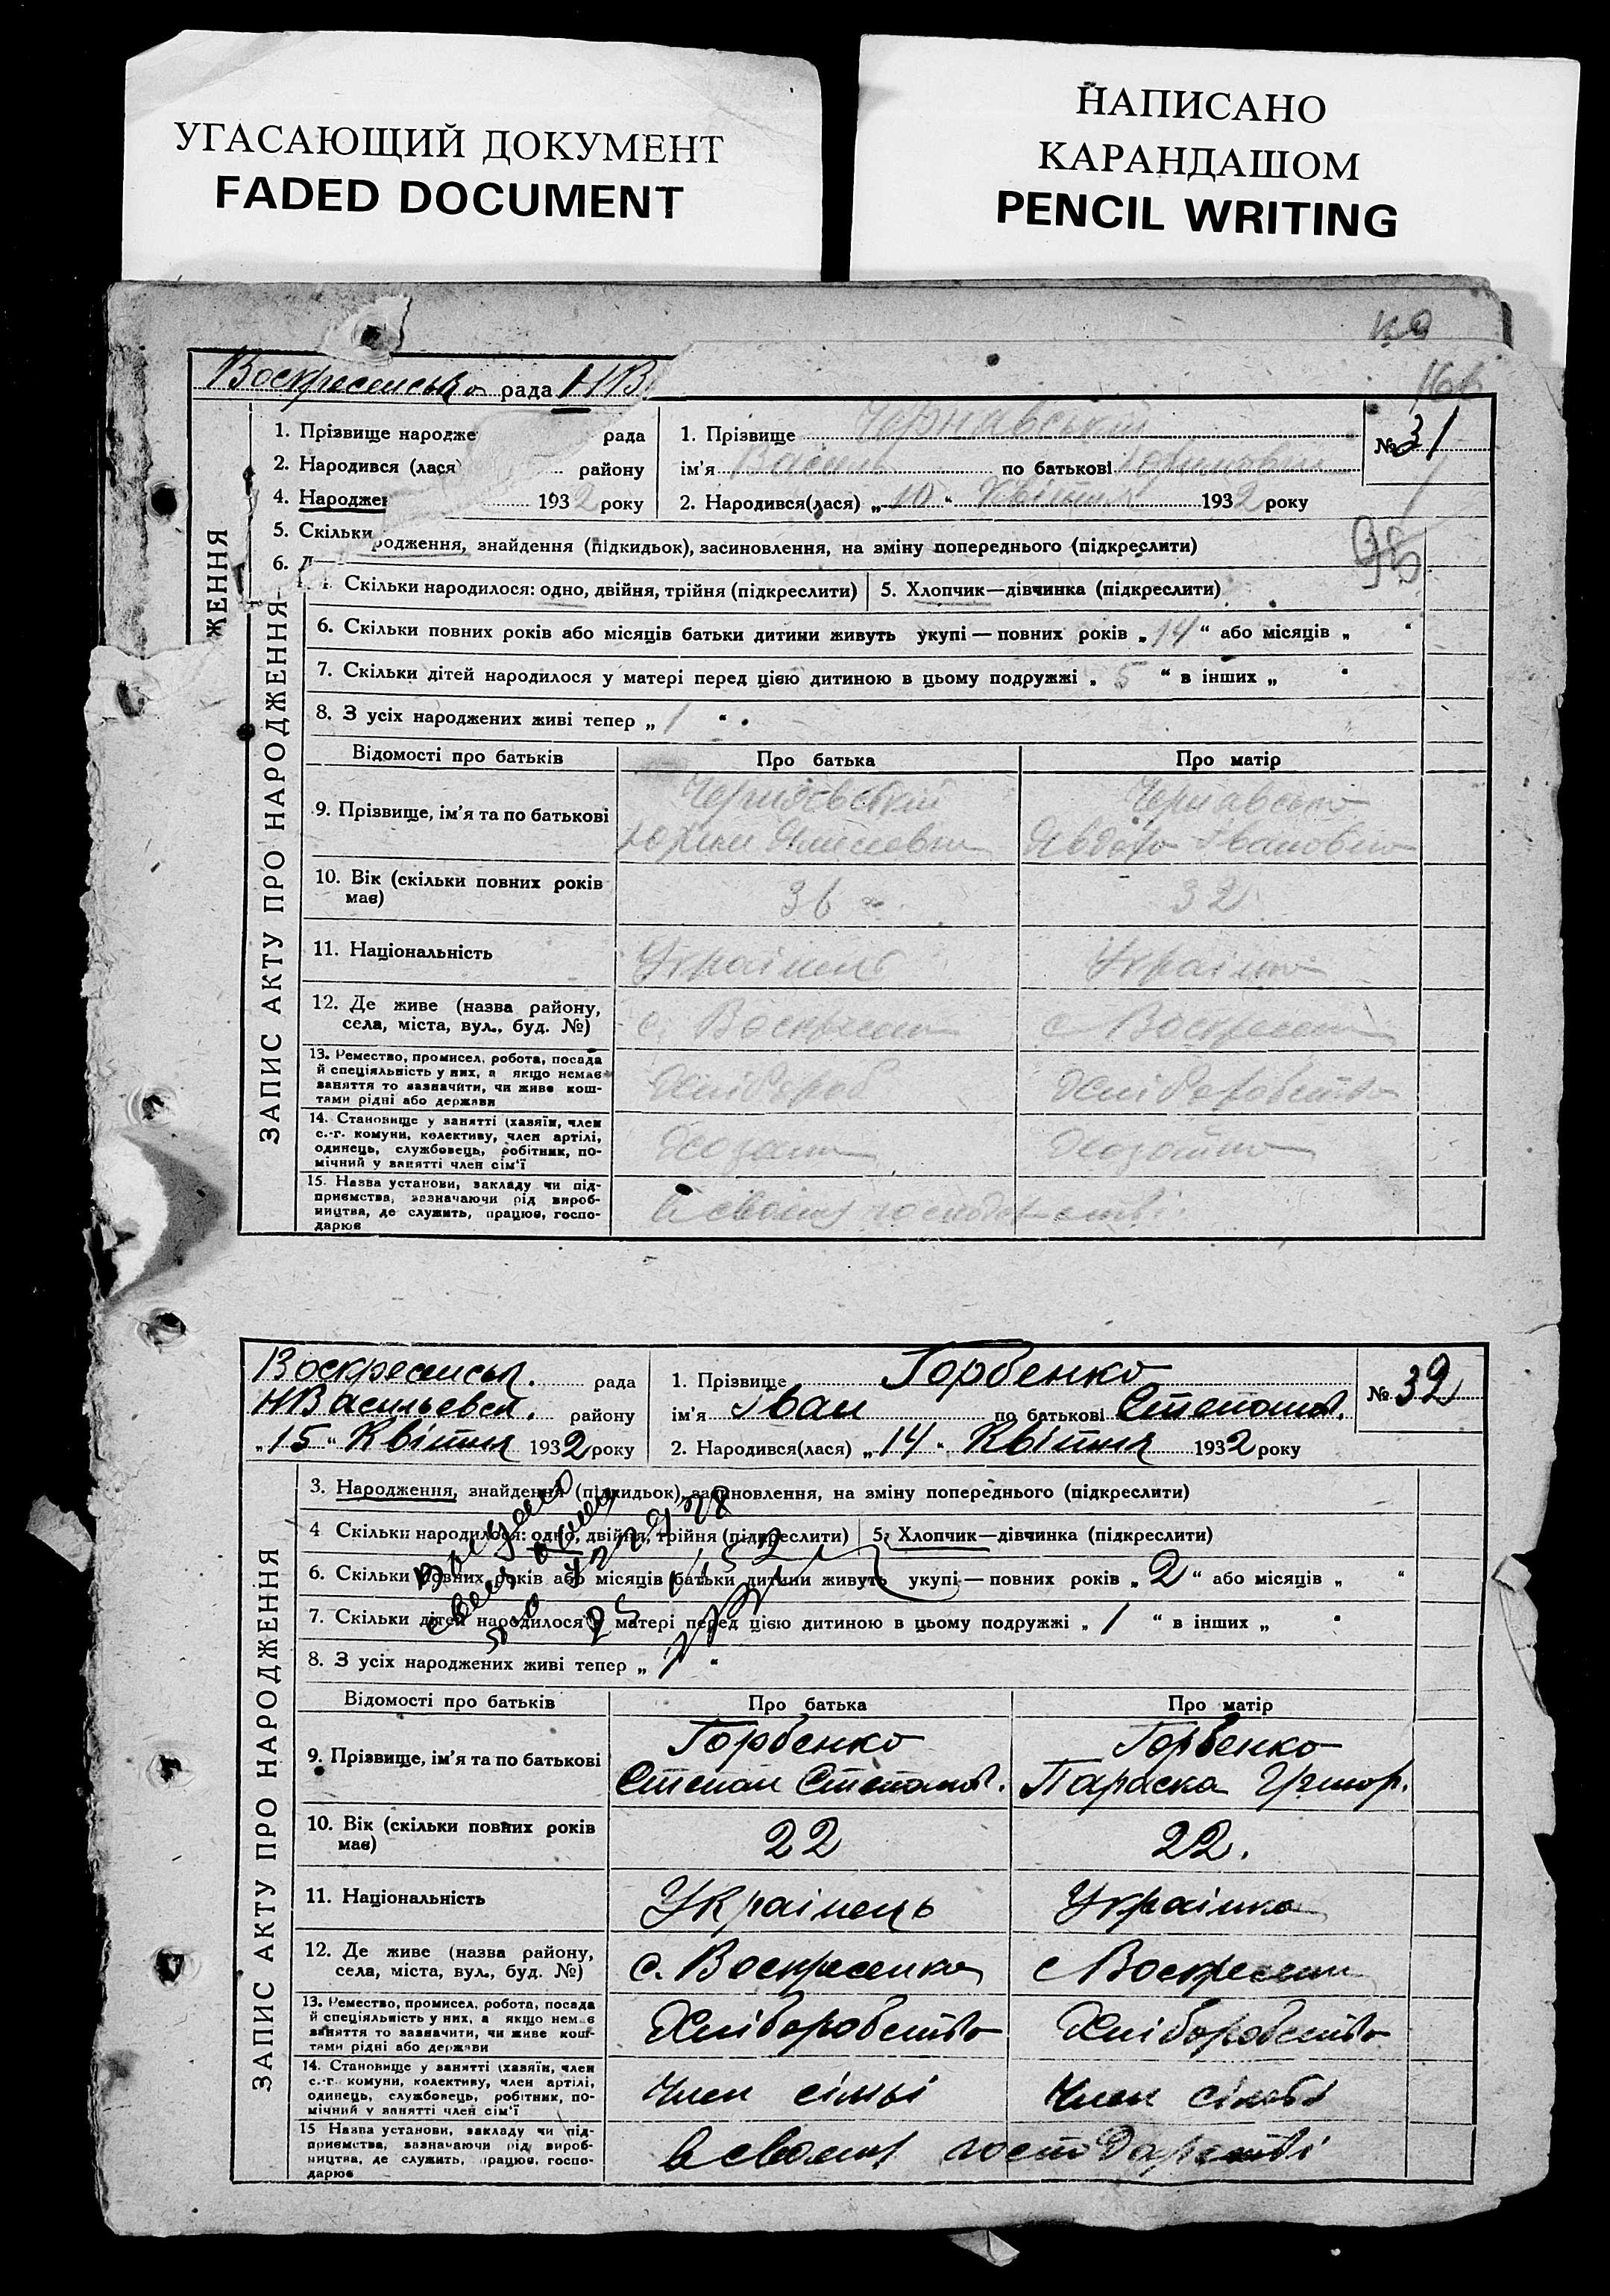 УГАСАЮЩИЙ ДОКУМЕНТ
FADED DOCUMENT
НАПИСАНО
КАРАНДАШОМ
PENCIL WRITING
Воскресенська рада НВ
ЖЕННЯ
1. Прізвище народже
2. Народився (лася)
4. Народжен
5. Скільки
6. Д
ЗАПИС АКТУ ПРО НАРОДЖЕННЯ
рада
району
1932 року
1. Прізвище Чернавський
№ 31
ім'я Василь по батькові
2. Народився(лася) „10“ Квітня 1932 року
родження, знайдення (підкидьок), засиновлення, на зміну попереднього (підкреслити)
Скільки народилося: одно, двійня, трійня (підкреслити) 5. Хлопчик—дівчинка (підкреслити)
6. Скільки повних років або місяців батьки дитини живуть укупі — повних років „14“ або місяців „ “
7. Скільки дітей народилося у матері перед цією дитиною в цьому подружжі „5“ в інших „ “
8. З усіх народжених живі тепер „1“
Відомості про батьків Про батька Про матір
9. Прізвище, ім'я та по батькові
Чернавський Чернавська
Івановна
10. Вік (скільки повних років має) 36 32
11. Національність Українець Українка
12. Де живе (назва району, села, міста, вул., буд. №) с. Воскресен с Воскресен
13. Ремество, промисел, робота, посада й спеціяльність у них, а якщо немає заняття то зазначити, чи живе коштами рідні або держави
Хлібороб Хліборобство
14. Становище у занятті (хазяїн, член с.-г. комуни, колективу, член артілі, одинець, службовець, робітник, помічний у занятті член сім'ї
15. Назва установи, закладу чи підприємства, зазначаючи рід виробництва, де служить, працює, господарює
в своєму господарстві
Воскресенськ. рада
НВасильевск. району
„15“ Квітня 1932 року
1. Прізвище Горбенко
№ 32
ім'я Іван по батькові Степанов.
2. Народився(лася) „14“ Квітня 1932 року
ЗАПИС АКТУ ПРО НАРОДЖЕННЯ
3. Народження, знайдення (підкидьок), засиновлення, на зміну попереднього (підкреслити)
4 Скільки народилося: одно, двійня, трійня (підкреслити) 5. Хлопчик—дівчинка (підкреслити)
6. Скільки повних років або місяців батьки дитини живуть укупі — повних років „2“ або місяців „ “
7. Скільки дітей народилося у матері перед цією дитиною в цьому подружжі „1“ в інших „ “
8. З усіх народжених живі тепер „ “
Відомості про батьків Про батька Про матір
9. Прізвище, ім'я та по батькові
Горбенко Горбенко
Степан Степанов. Параска Григор.
10. Вік (скільки повних років має) 22 22.
11. Національність Українець Українка
12. Де живе (назва району, села, міста, вул., буд. №) с. Воскресенка с Воскресен
13. Ремество, промисел, робота, посада й спеціяльність у них, а якщо немає заняття то зазначити, чи живе коштами рідні або держави
Хліборобство Хліборобство
14. Становище у занятті (хазяїн, член с.-г. комуни, колективу, член артілі, одинець, службовець, робітник, помічний у занятті член сім'ї
Член сімьі Член сімьі
15 Назва установи, закладу чи підприємства, зазначаючи рід виробництва, де служить, працює, господарює
в своєму господарстві